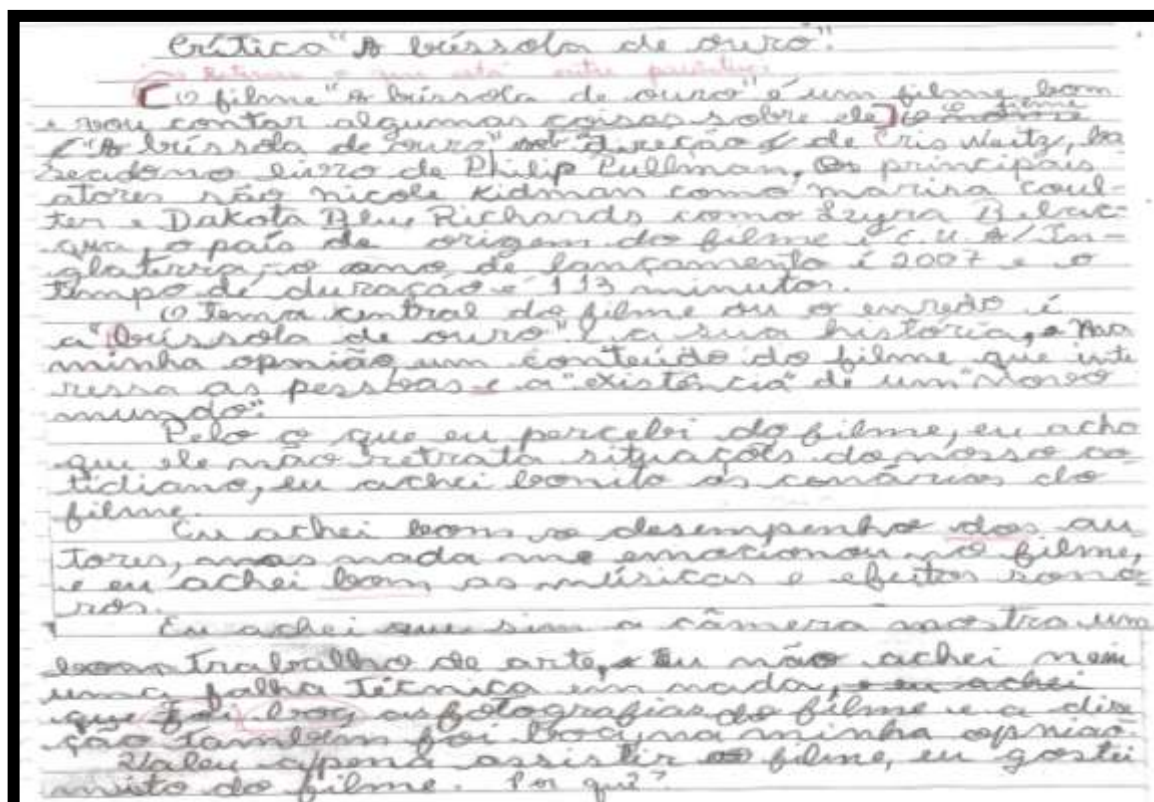 Crítica "A bússola de ouro".
Retirar o que está entre parêntese
[O filme "A bússola de ouro" é um filme bom
e vou contar algumas coisas sobre ele] o nome filme
"A bússola de ouro" sob direção de Cris Weitz, ba
seado no livro de Philip Pullman, Os principais
atores são nicole Kidman como marisa coul-
ter e Dakota Blue Richards como Lzyra Belac-
qua, o país de origem do filme é E.U.A/In-
glaterra, o ano de lançamento é 2007 e o
tempo de duração é 113 minutos.
O tema central do filme ou o enredo é
a "bússola de ouro" e a sua história, Na
minha opnião um conteúdo do filme que inte
ressa as pessoas e a "existência" de um "novo
mundo".
Pelo o que eu percebi do filme, eu acho
que ele não retrata situações do nosso co
tidiano, eu achei bonito as cenários do
filme.
Eu achei bom o desempenho dos au
tores, mas nada me emocionou no filme,
e eu achei bom as músicas e efeitos sono
ros.
Eu achei que sim a câmera mostra um
bom trabalho de arte, Eu não achei nem
uma falha técnica em nada, e eu achei
que foi boa as fotografias do filme e a dire
ção também foi boa, na minha opnião.
Valeu apena assistir filme, eu gostei
muito do filme. Por quê?